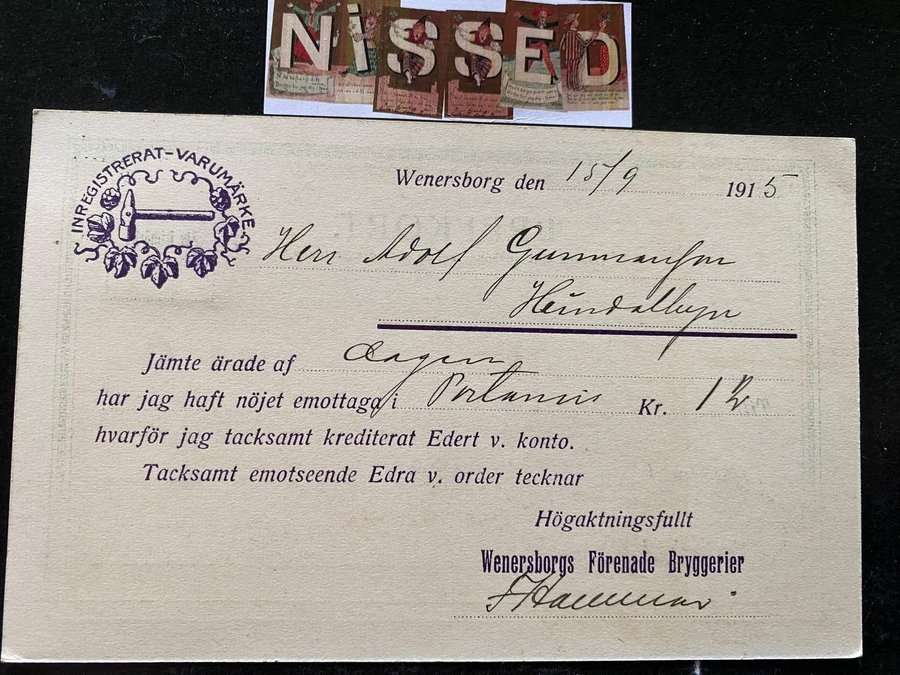 NISSED
INREGISTRERAT-VARUMÄRKE
Wenersborg den 15/9 1915
Herr Adolf
Jämte ärade af dagen
har jag haft nöjet emottaga i Kr. 12
hvarför jag tacksamt krediterat Edert v. konto.
Tacksamt emotseende Edra v. order tecknar
Högaktningsfullt
Wenersborgs Förenade Bryggerier
F Hammar